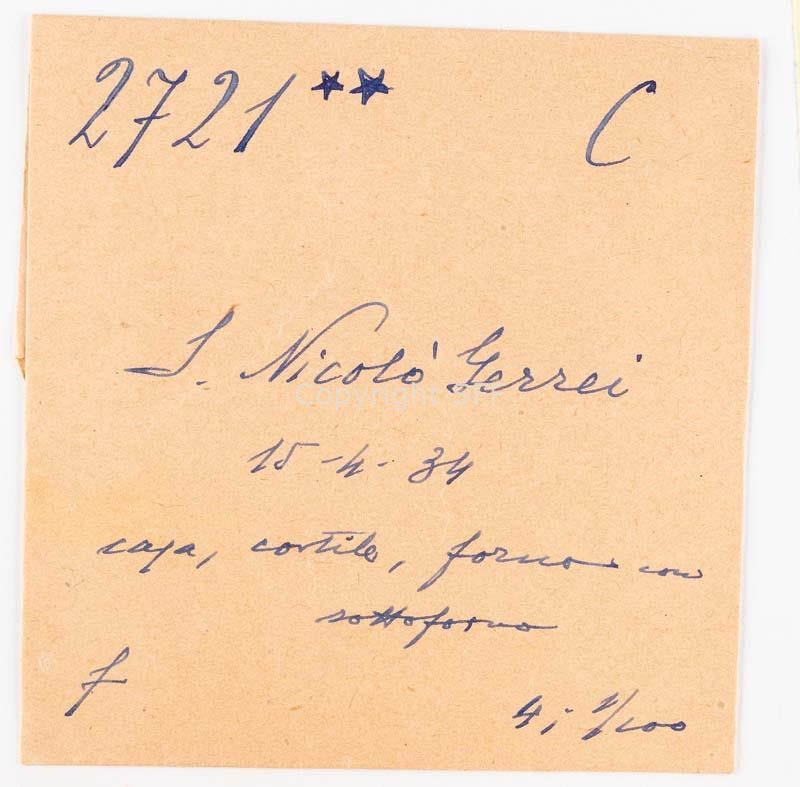 2721** C
S. Nicolò Gerrei
Copyright
15-4-34
casa, cortile, forno con
sottoforno
f
4; 1/100